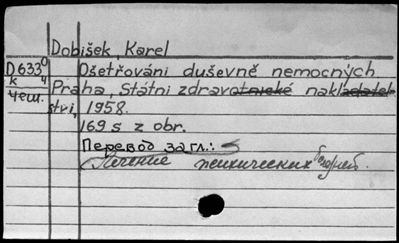 Dobišek, Karel
D6330 Ošetřováni duševně nemocných
k 4 Praha, Státni zdravotnické nakladatelstvi, 1958.
чеш.
169 s z obr.
Перевод загл.:
Лечение психических